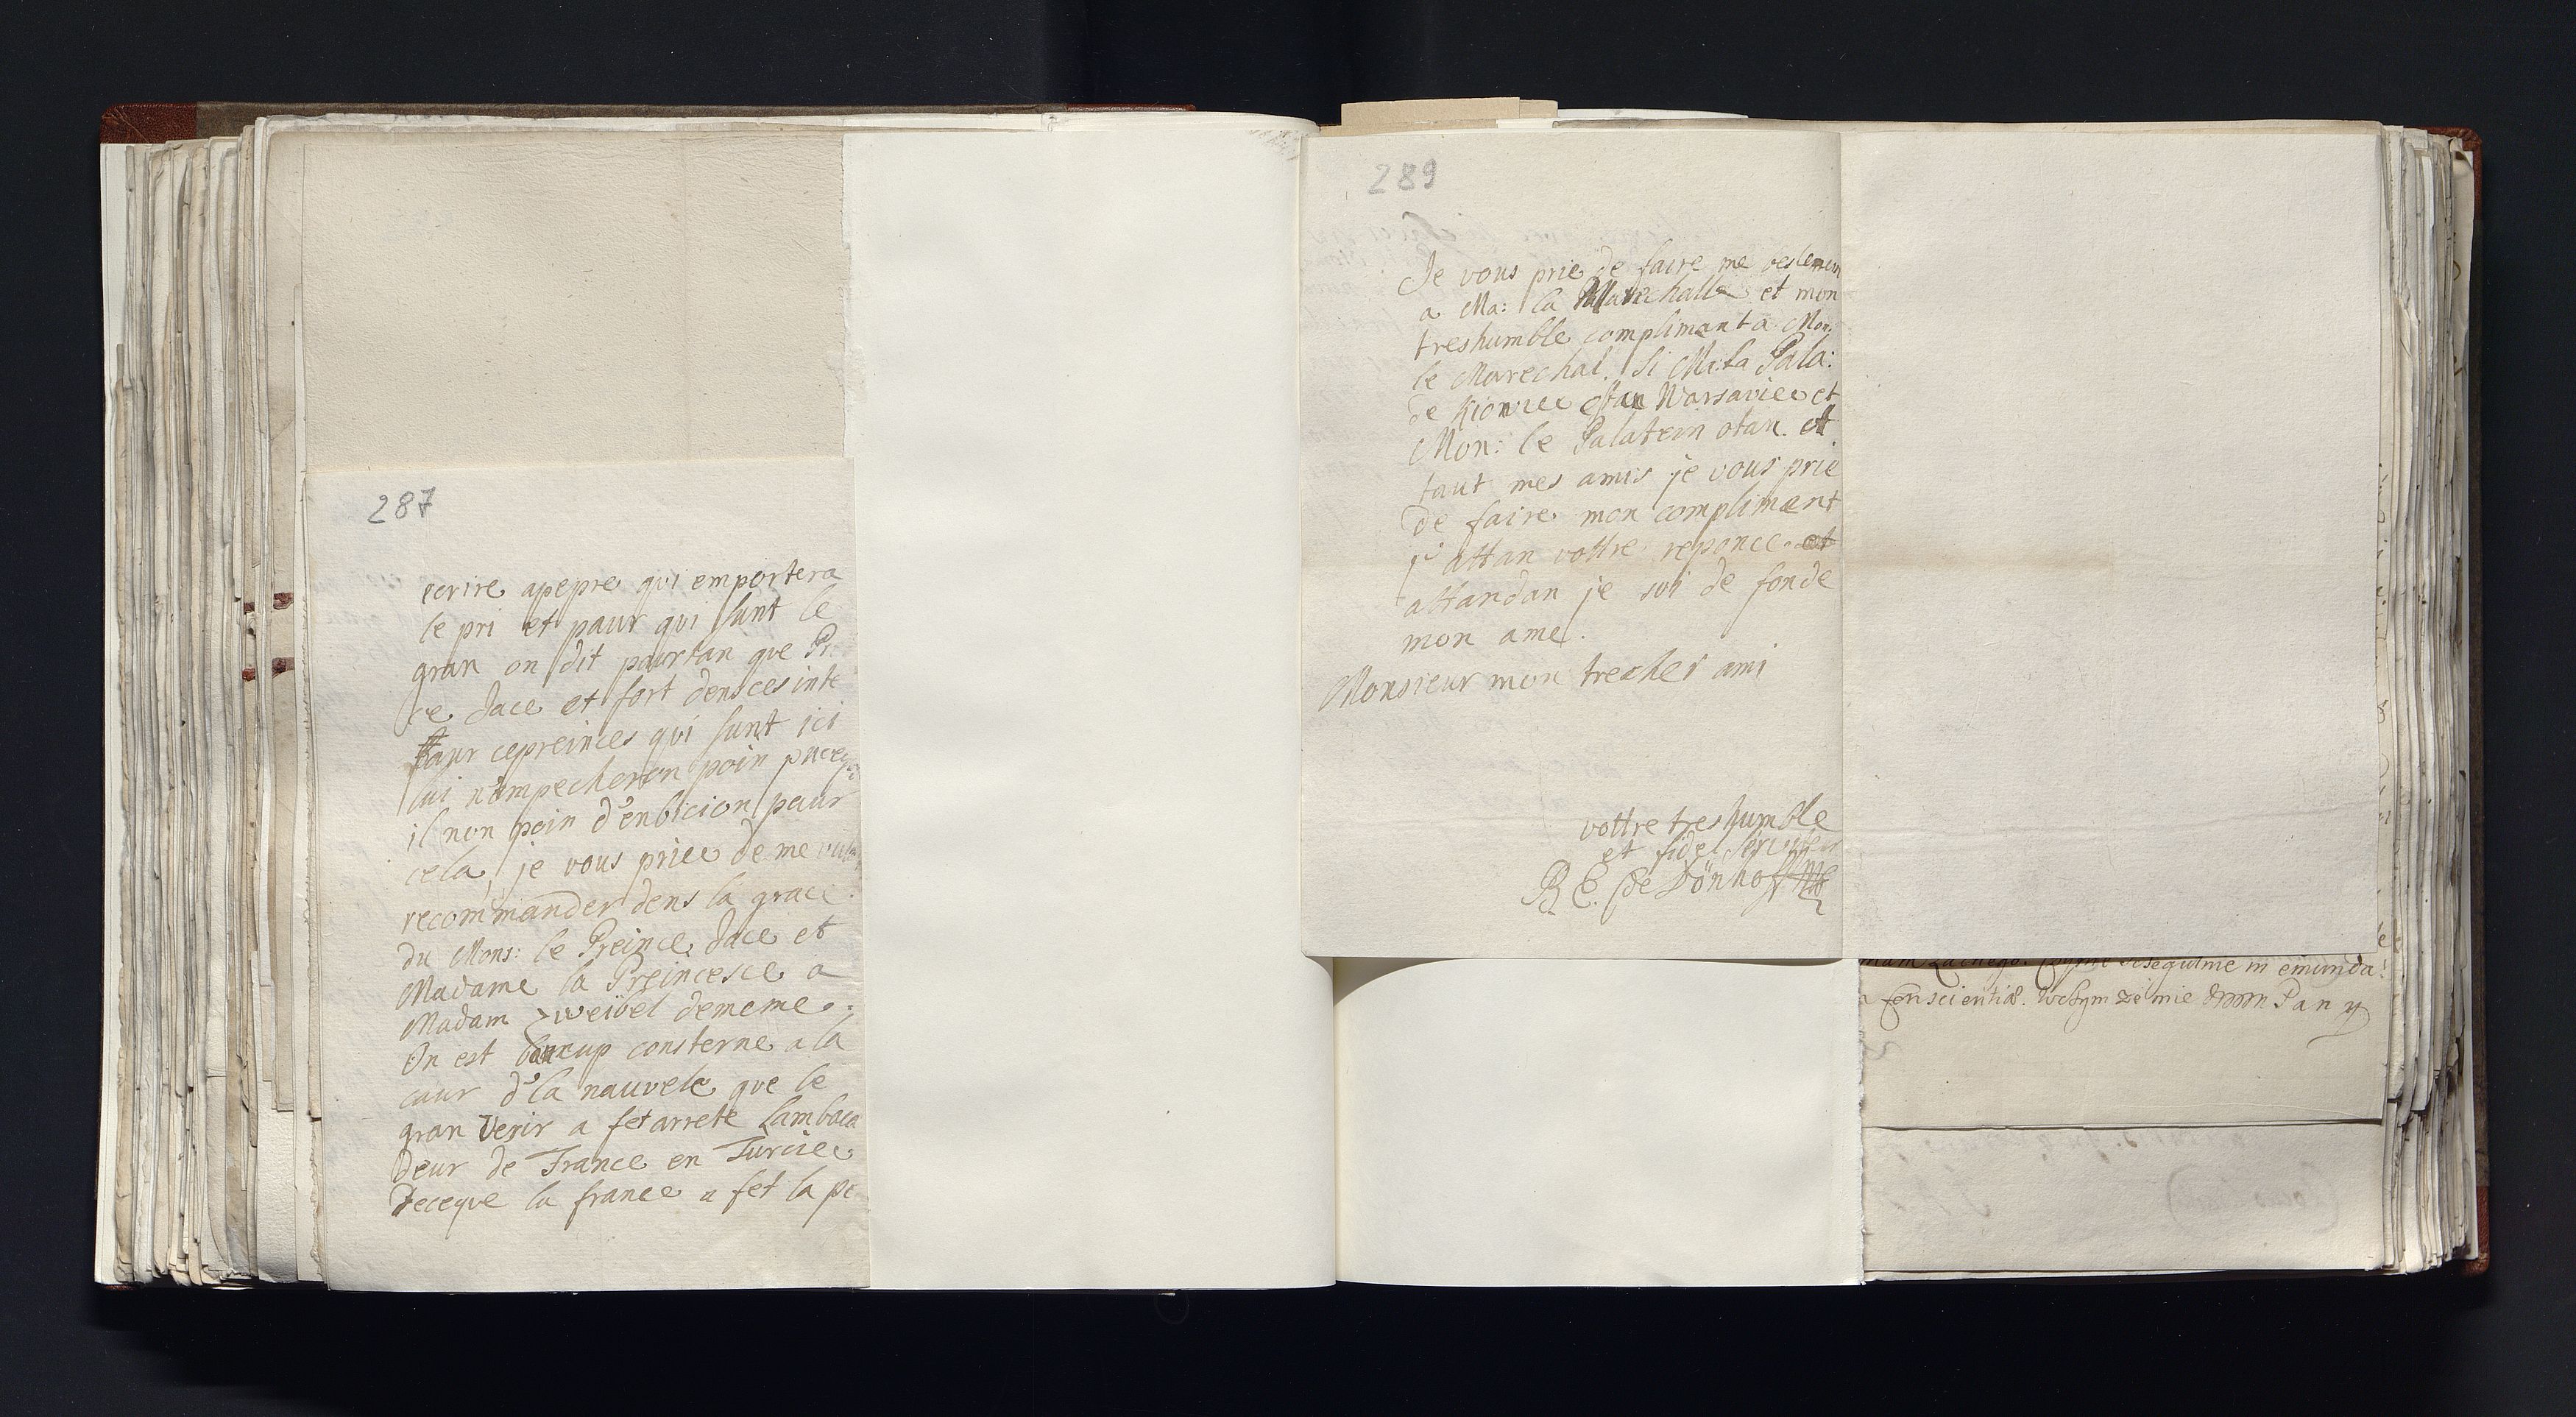 287
ecrire apepre qui emportera
le pri et paur qui sunt le
gran on dit pourtan que Pr
ce Jace et fort dens ces inte
paur cepreinces qui sunt ici
lui nampecheron poin puceque
il non poin d'enbicion paur
cela, je vous priee de me
recommander dens la grace
du Mons: le Preince Jace et
Madame la Preincesce a
Madam Zweibel dememe.
On est baucup consterne a la
caur d'la nauvele que le
gran Vesir a fet arrete Lambaca
deur de France en Turciee
deceque la france a fet la pe
289
Je vous prie de faire me
a Ma: la Marechalle et mon
treshumble complimant a Mon:
le Marechal. Si Ma: la Pala:
de Kiowiee Warsaviee et
Mon: le Palatein otan et
taut mes amis je vous prie
de faire mon complimant
j'attan vottre reponce et
attandan je sui de fonde
mon ame.
Monsieur mon trecher ami
vottre treshumble
et fidel
B E. de Dönhoff
in emunda
conscientia. mie Pan y